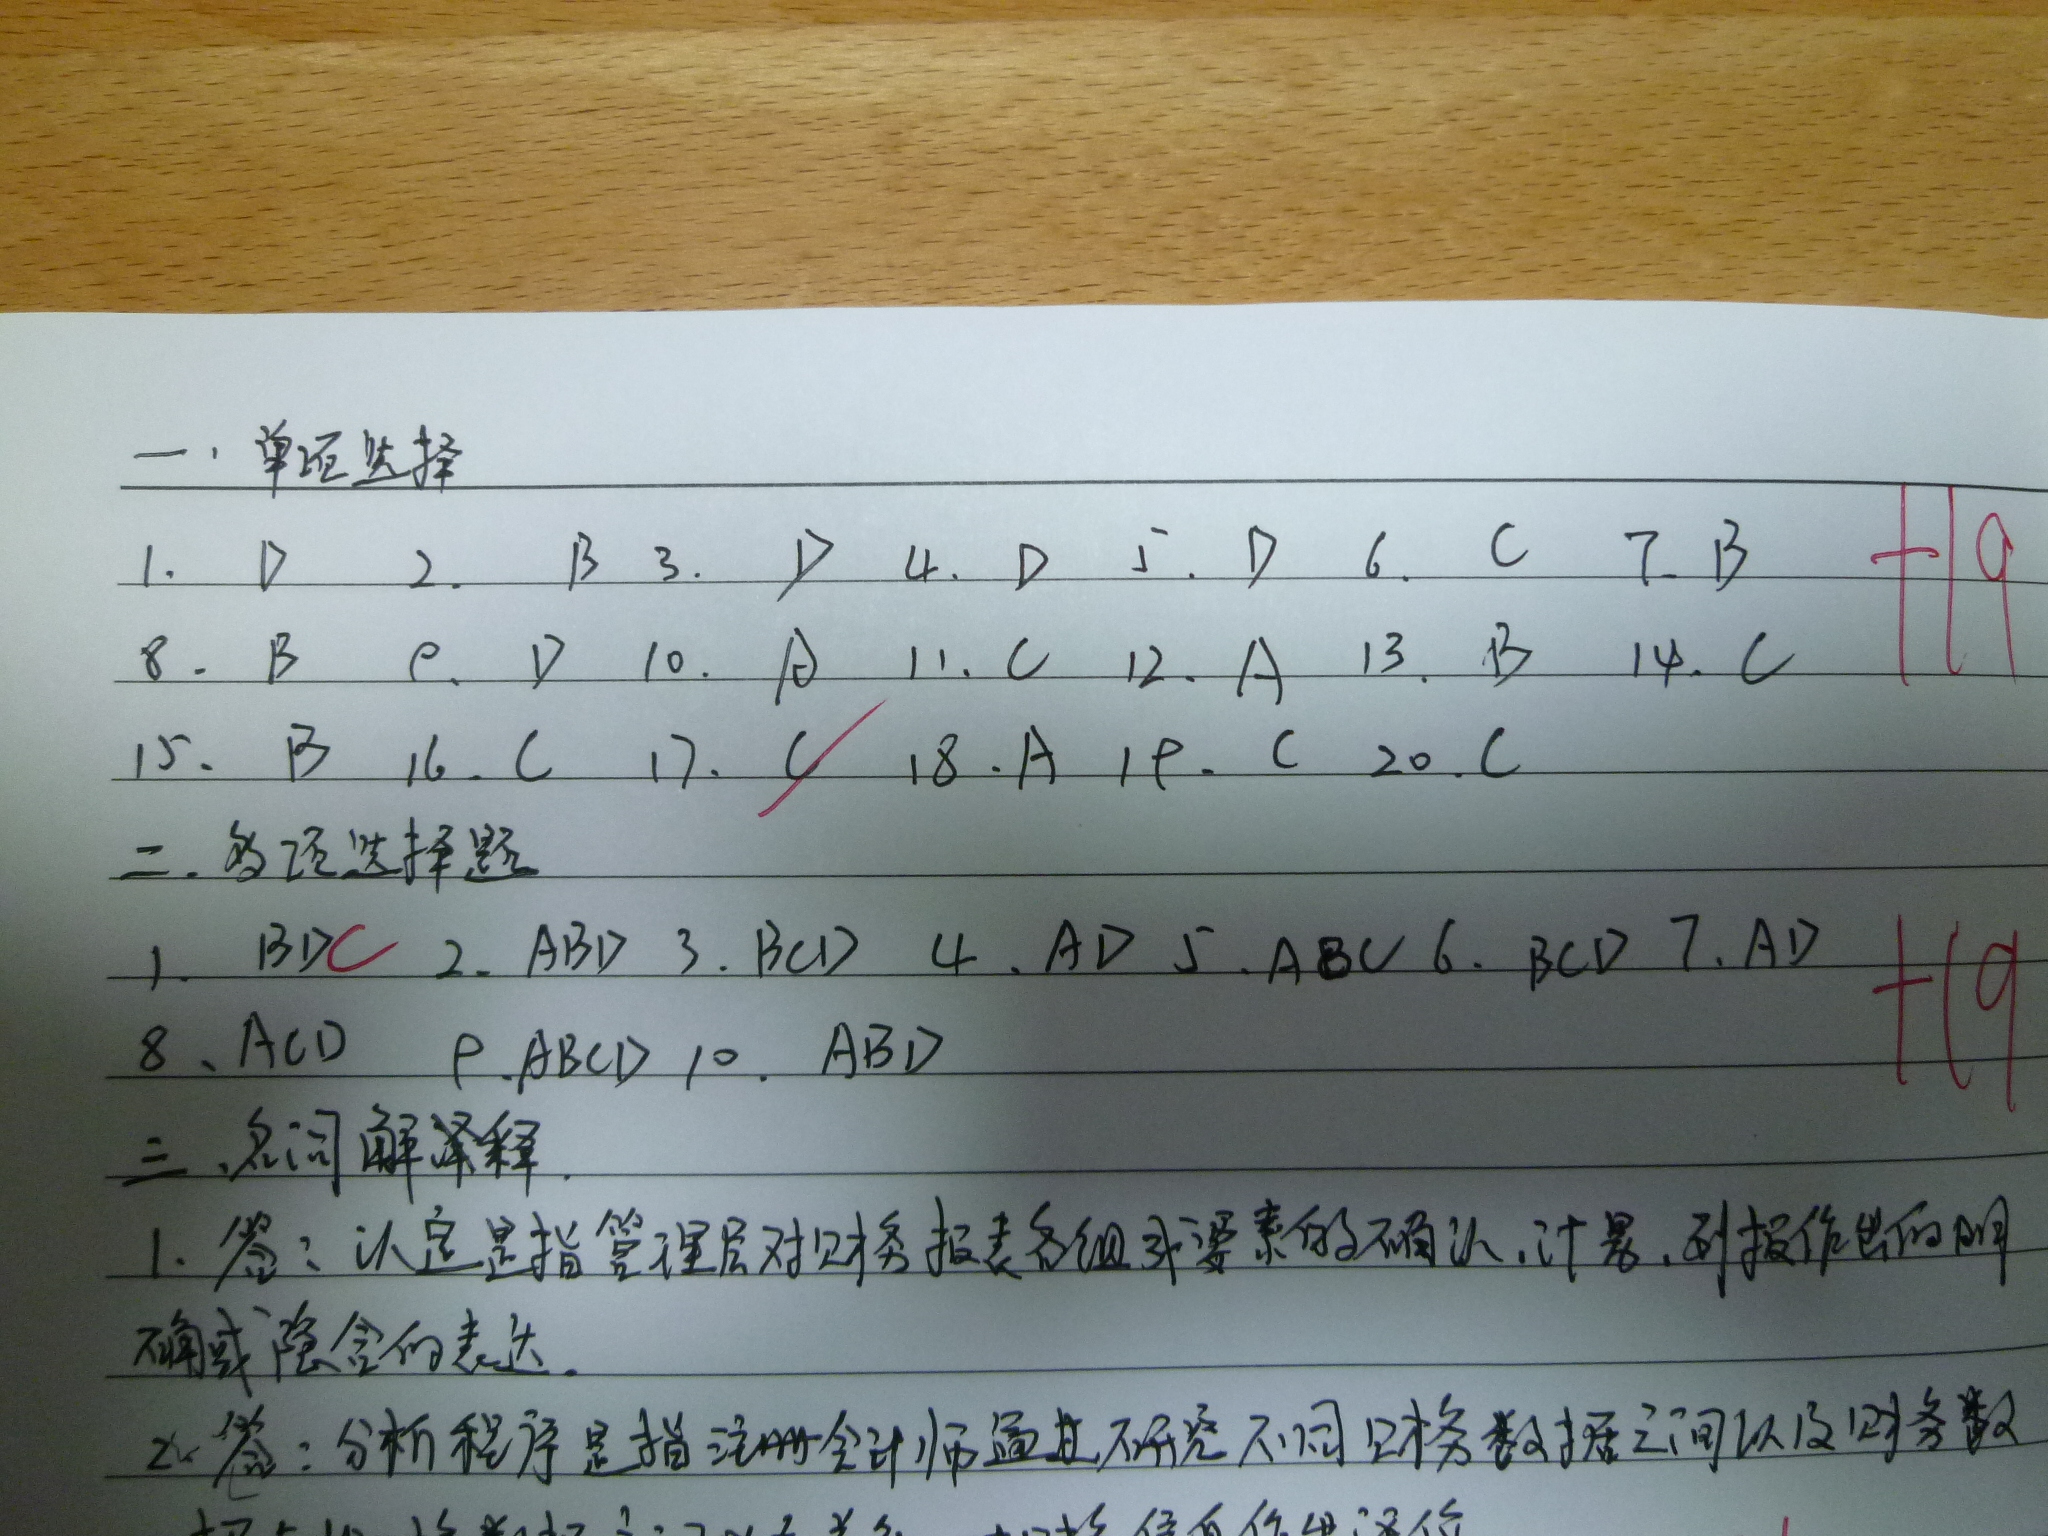 一、单项选择
1. D 2. B 3. D 4. D 5. D 6. C 7. B +19
8. B 9. D 10. A 11. C 12. A 13. B 14. C
15. B 16. C 17. C 18. A 19. C 20. C
二、多项选择题
1. BDC 2. ABD 3. BCD 4. AD 5. ABC 6. BCD 7. AD +19
8、ACD 9. ABCD 10. ABD
三、名词解释.
1. 答：认定是指管理层对财务报表各组成要素的确认、计量、列报作出的明
确或隐含的表达.
2. 答：分析程序是指注册会计师通过研究不同财务数据之间以及财务数